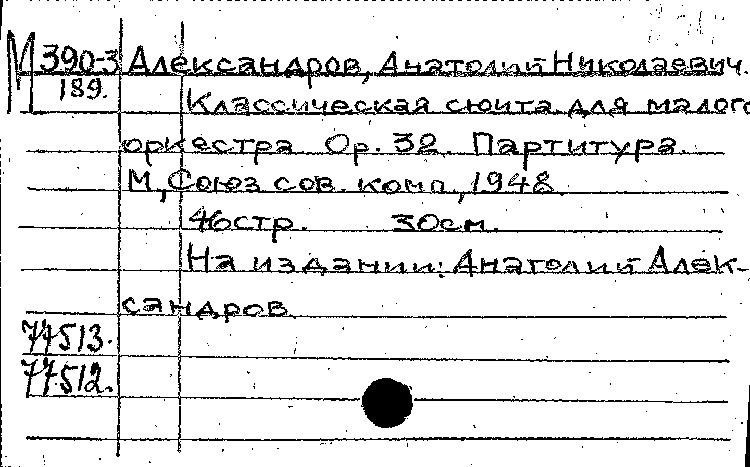 М 390-3 Александров, Анатолий Николаевич.
189. Классическая сюита для малого
оркестра Op. 32. Партитура.
М, Союз сов. комп., 1948.
46стр. 30см.
На издании: Анатолий Алек-
сандров
77513.
77512.